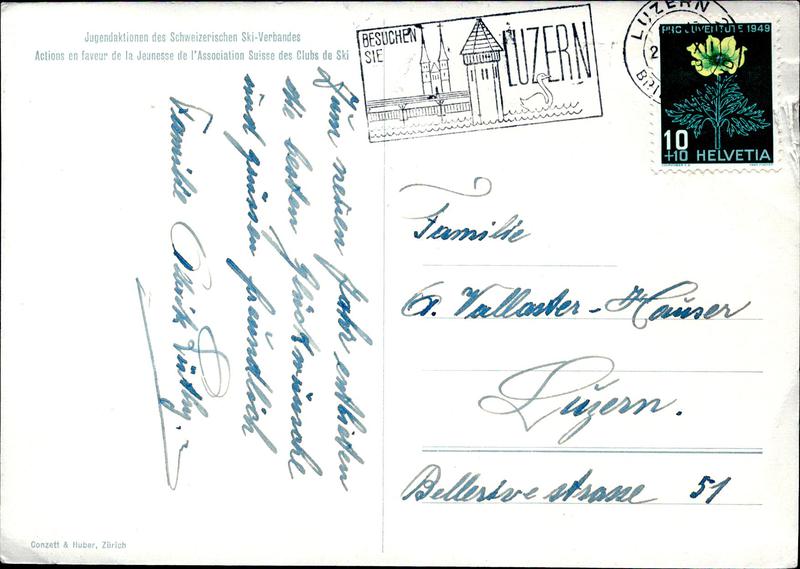 Jugendaktionen des Schweizerischen Ski-Verbandes
Actions en faveur de la Jeunesse de l'Association Suisse des Clubs de Ski
BESUCHEN
SIE
LUZERN
LUZERN
PRO JUVENTUTE 1949
10
+10 HELVETIA
Zum neuen Jahr entbieten
die besten Glückwünsche
und grüssen freundlich
Familie
Familie
Vallaster-Hauser
Luzern.
Bellerive strasse 51
Conzett & Huber, Zürich